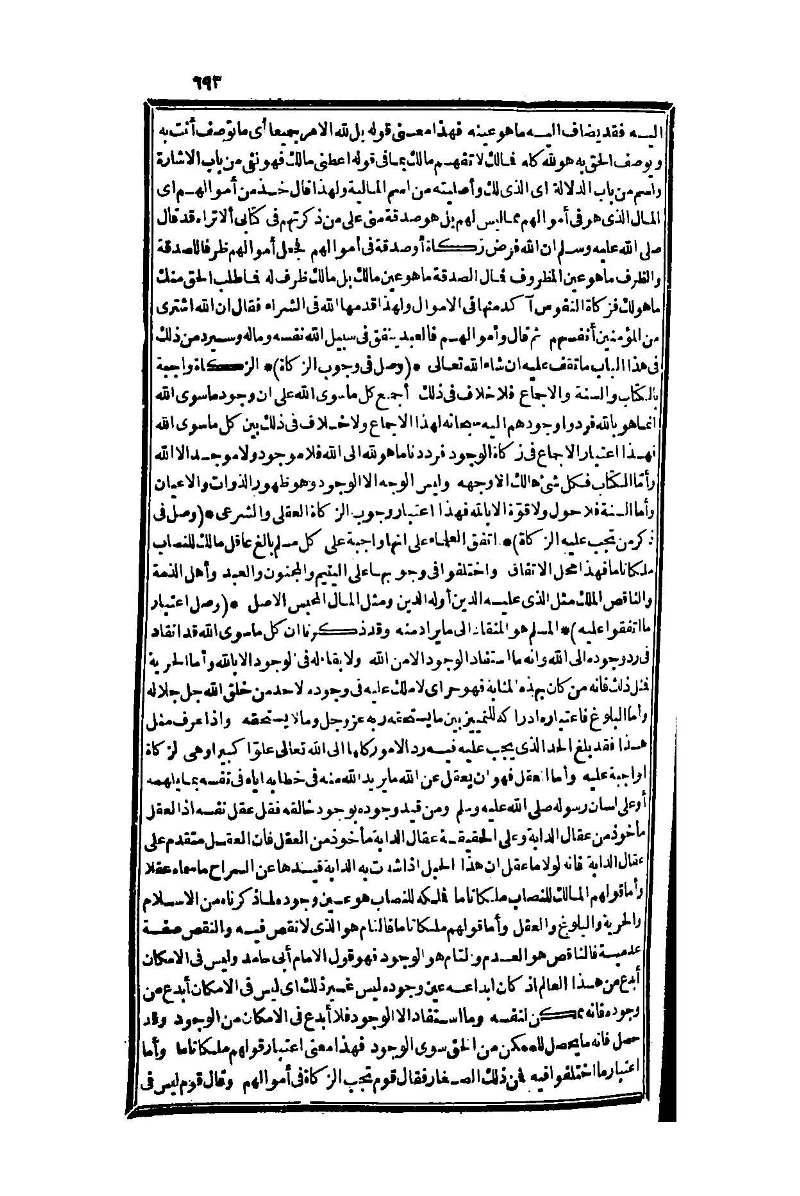 ٦٩٣
اليه فقد يضاف اليه ما هو عينه فهذا معنى قوله بل لله الامر جميعا أى ما توصف أنت به
ويوصف الحق به هو لله كله فمالك لا تفهم مالك بما فى قوله اعطنى مالك فهو نفى من باب الاشارة
واسم من باب الدلالة اى الذى لك وأصليته من اسم المالية ولهذا قال خذ من أموالهم اى
المال الذى هو فى أموالهم مما ليس لهم بل هو صدقة منى على من ذكرتهم فى كتابى ألا تراه قد قال
صلى الله عليه وسلم ان الله فرض زكاة أو صدقة فى أموالهم فجعل أموالهم ظرفا للصدقة
والظرف ما هو عين المظروف فمال الصدقة ما هو عين مالك بل مالك ظرف له فما طلب الحق منك
ما هو لك فزكاة النفوس آكد منها فى الاموال ولهذا قدمها الله فى الشراء فقال ان الله اشترى
من المؤمنين أنفسهم ثم قال وأموالهم فالعبد ينفق فى سبيل الله نفسه وماله وسيرد من ذلك
فى هذا الباب ما تقف عليه ان شاء الله تعالى *(وصل فى وجوب الزكاة)* الزكاة واجبة
بالكتاب والسنة والاجماع فلا خلاف فى ذلك أجمع كل ما سوى الله على ان وجود ما سوى الله
انما هو بالله فردوا وجودهم اليه سبحانه لهذا الاجماع ولا خلاف فى ذلك بين كل ما سوى الله
فهذا اعتبار الاجماع فى زكاة الوجود فرددنا ما هو لله الى الله فلا موجود ولا موجد الا الله
وأما الكتاب فكل شئ هالك الا وجهه وليس الوجه الا الوجود وهو ظهور الذوات والاعيان
وأما السنة فلا حول ولا قوة الا بالله فهذا اعتبار وجوب الزكاة العقلى والشرعى *(وصل فى
ذكر من تجب عليه الزكاة)* اتفق العلماء على انها واجبة على كل مسلم بالغ عاقل مالك للنصاب
ملكا تاما فهذا محل الاتفاق واختلفوا فى وجوبها على اليتيم والمجنون والعبد وأهل الذمة
والناقص الملك مثل الذى عليه الدين أو له الدين ومثل المال المحبس الاصل *(وصل اعتبار
ما اتفقوا عليه)* المسلم هو المنقاد الى ما يراد منه وقد ذكرنا ان كل ما سوى الله قد انقاد
فى رد وجوده الى الله وانه ما استفاد الوجود الا من الله ولا بقاء له فى الوجود الا بالله وأما الحرية
فمثل ذلك فانه من كان بهذه المثابة فهو حر اى لا ملك عليه فى وجوده لاحد من خلق الله جل جلاله
وأما البلوغ فاعتباره ادراكه للتمييز بين ما يستحقه ربه عز وجل وما لا يستحقه واذا عرف مثل
هذا فقد بلغ الحد الذى يجب عليه فيه رد الامور كلها الى الله تعالى علوا كبيرا وهى الزكاة
الواجبة عليه وأما العقل فهو ان يعقل عن الله ما يريد الله منه فى خطابه اياه فى نفسه بما يلهمه
أو على لسان رسوله صلى الله عليه وسلم ومن قيد وجوده بوجود خالقه فقد عقل نفسه اذ العقل
مأخوذ من عقال الدابة وعلى الحقيقة عقال الدابة مأخوذ من العقل فان العقل متقدم على
عقال الدابة فانه لولا ما عقل ان هذا الحبل اذا شدت به الدابة قيدها عن السراح ما سماه عقلا
وأما قولهم المالك للنصاب ملكا تاما فملكه للنصاب هو عين وجوده لما ذكرناه من الاسلام
والحرية والبلوغ والعقل وأما قولهم ملكا تاما فالتام هو الذى لا نقص فيه والنقص صفة
عدمية فالناقص هو العدم والتام هو الوجود فهو قول الامام أبى حامد وليس فى الامكان
أبدع من هذا العالم اذ كان ابداعه عين وجوده ليس غير ذلك اى ليس فى الامكان أبدع من
وجوده فانه ممكن لنفسه وما استفاد الا الوجود فلا أبدع فى الامكان من الوجود وقد
حصل فانه ما يحصل للممكن من الحق سوى الوجود فهذا معنى اعتبار قولهم ملكا تاما وأما
اعتبار ما اختلفوا فيه فمن ذلك الصغار فقال قوم تجب الزكاة فى أموالهم وقال قوم ليس فى